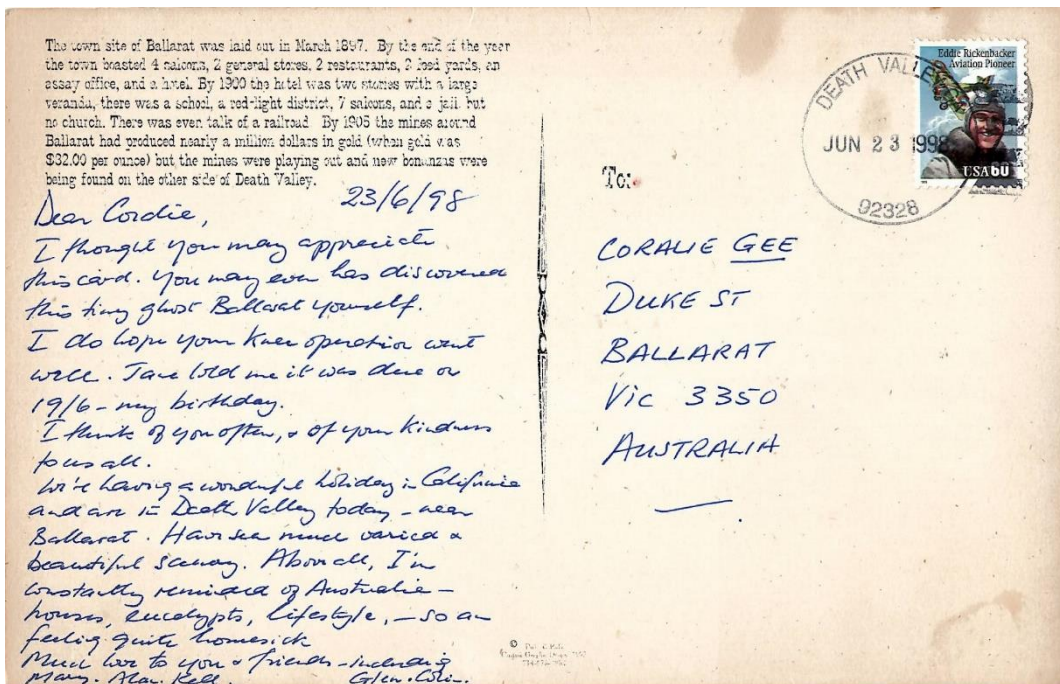 The town site of Ballarat was laid out in March 1897. By the end of the year
the town boasted 4 saloons, 2 general stores, 2 restaurants, 2 feed yards, an
assay office, and a hotel. By 1900 the hotel was two stories with a large
veranda, there was a school, a red-light district, 7 saloons, and a jail but
no church. There was even talk of a railroad. By 1905 the mines around
Ballarat had produced nearly a million dollars in gold (when gold was
$32.00 per ounce) but the mines were playing out and new bonanzas were
being found on the other side of Death Valley.
23/6/98
Dear Coralie,
I thought you may appreciate
this card. You may even has discovered
this tiny ghost Ballarat yourself.
I do hope your knee operation went
well. Jane told me it was due on
19/6 - my birthday.
I think of you often, & of your kindness
to us all.
We're having a wonderful holiday in California
and are in Death Valley today - near
Ballarat. Have seen much varied &
beautiful scenery. Above all, I'm
constantly reminded of Australia -
houses, eucalypts, lifestyle, - so am
feeling quite homesick
Much love to you & friends - including
Mary, Alan, Glen, Colin.
To:
CORALIE GEE
DUKE ST
BALLARAT
VIC 3350
AUSTRALIA
DEATH VALLEY
JUN 23 1998
92328
Eddie Rickenbacker
Aviation Pioneer
USA 60
©